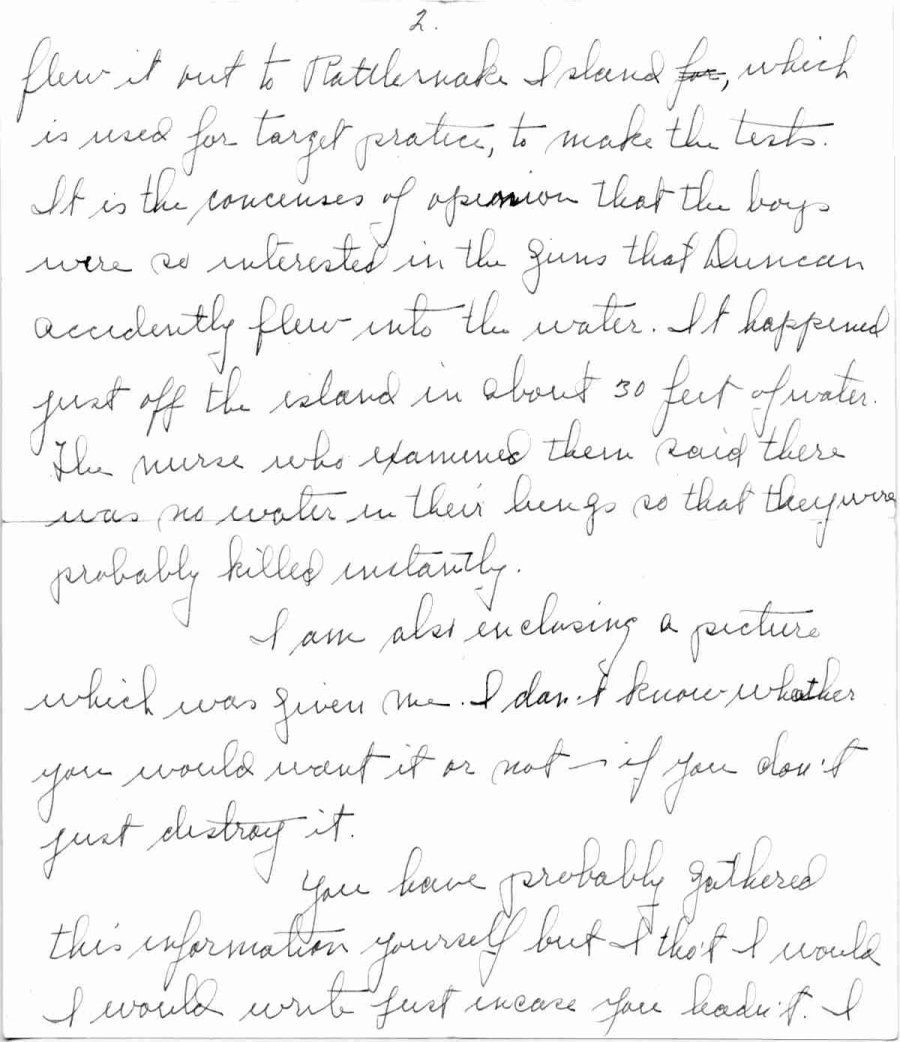 2.
flew it out to Rattlesnake Island for, which
is used for target pratice, to make the tests.
It is the concenses of openion that the boys
were so interested in the guns that Duncan
accidently flew into the water. It happened
just off the island in about 30 feet of water.
The nurse who examined them said there
was no water in their lungs so that they were
probably killed instantly.
I am also enclosing a picture
which was given me. I don't know whether
you would want it or not — if you don't
just destroy it.
You have probably gathered
this information yourself but I tho't I would
I would write just incase you hadn't. I